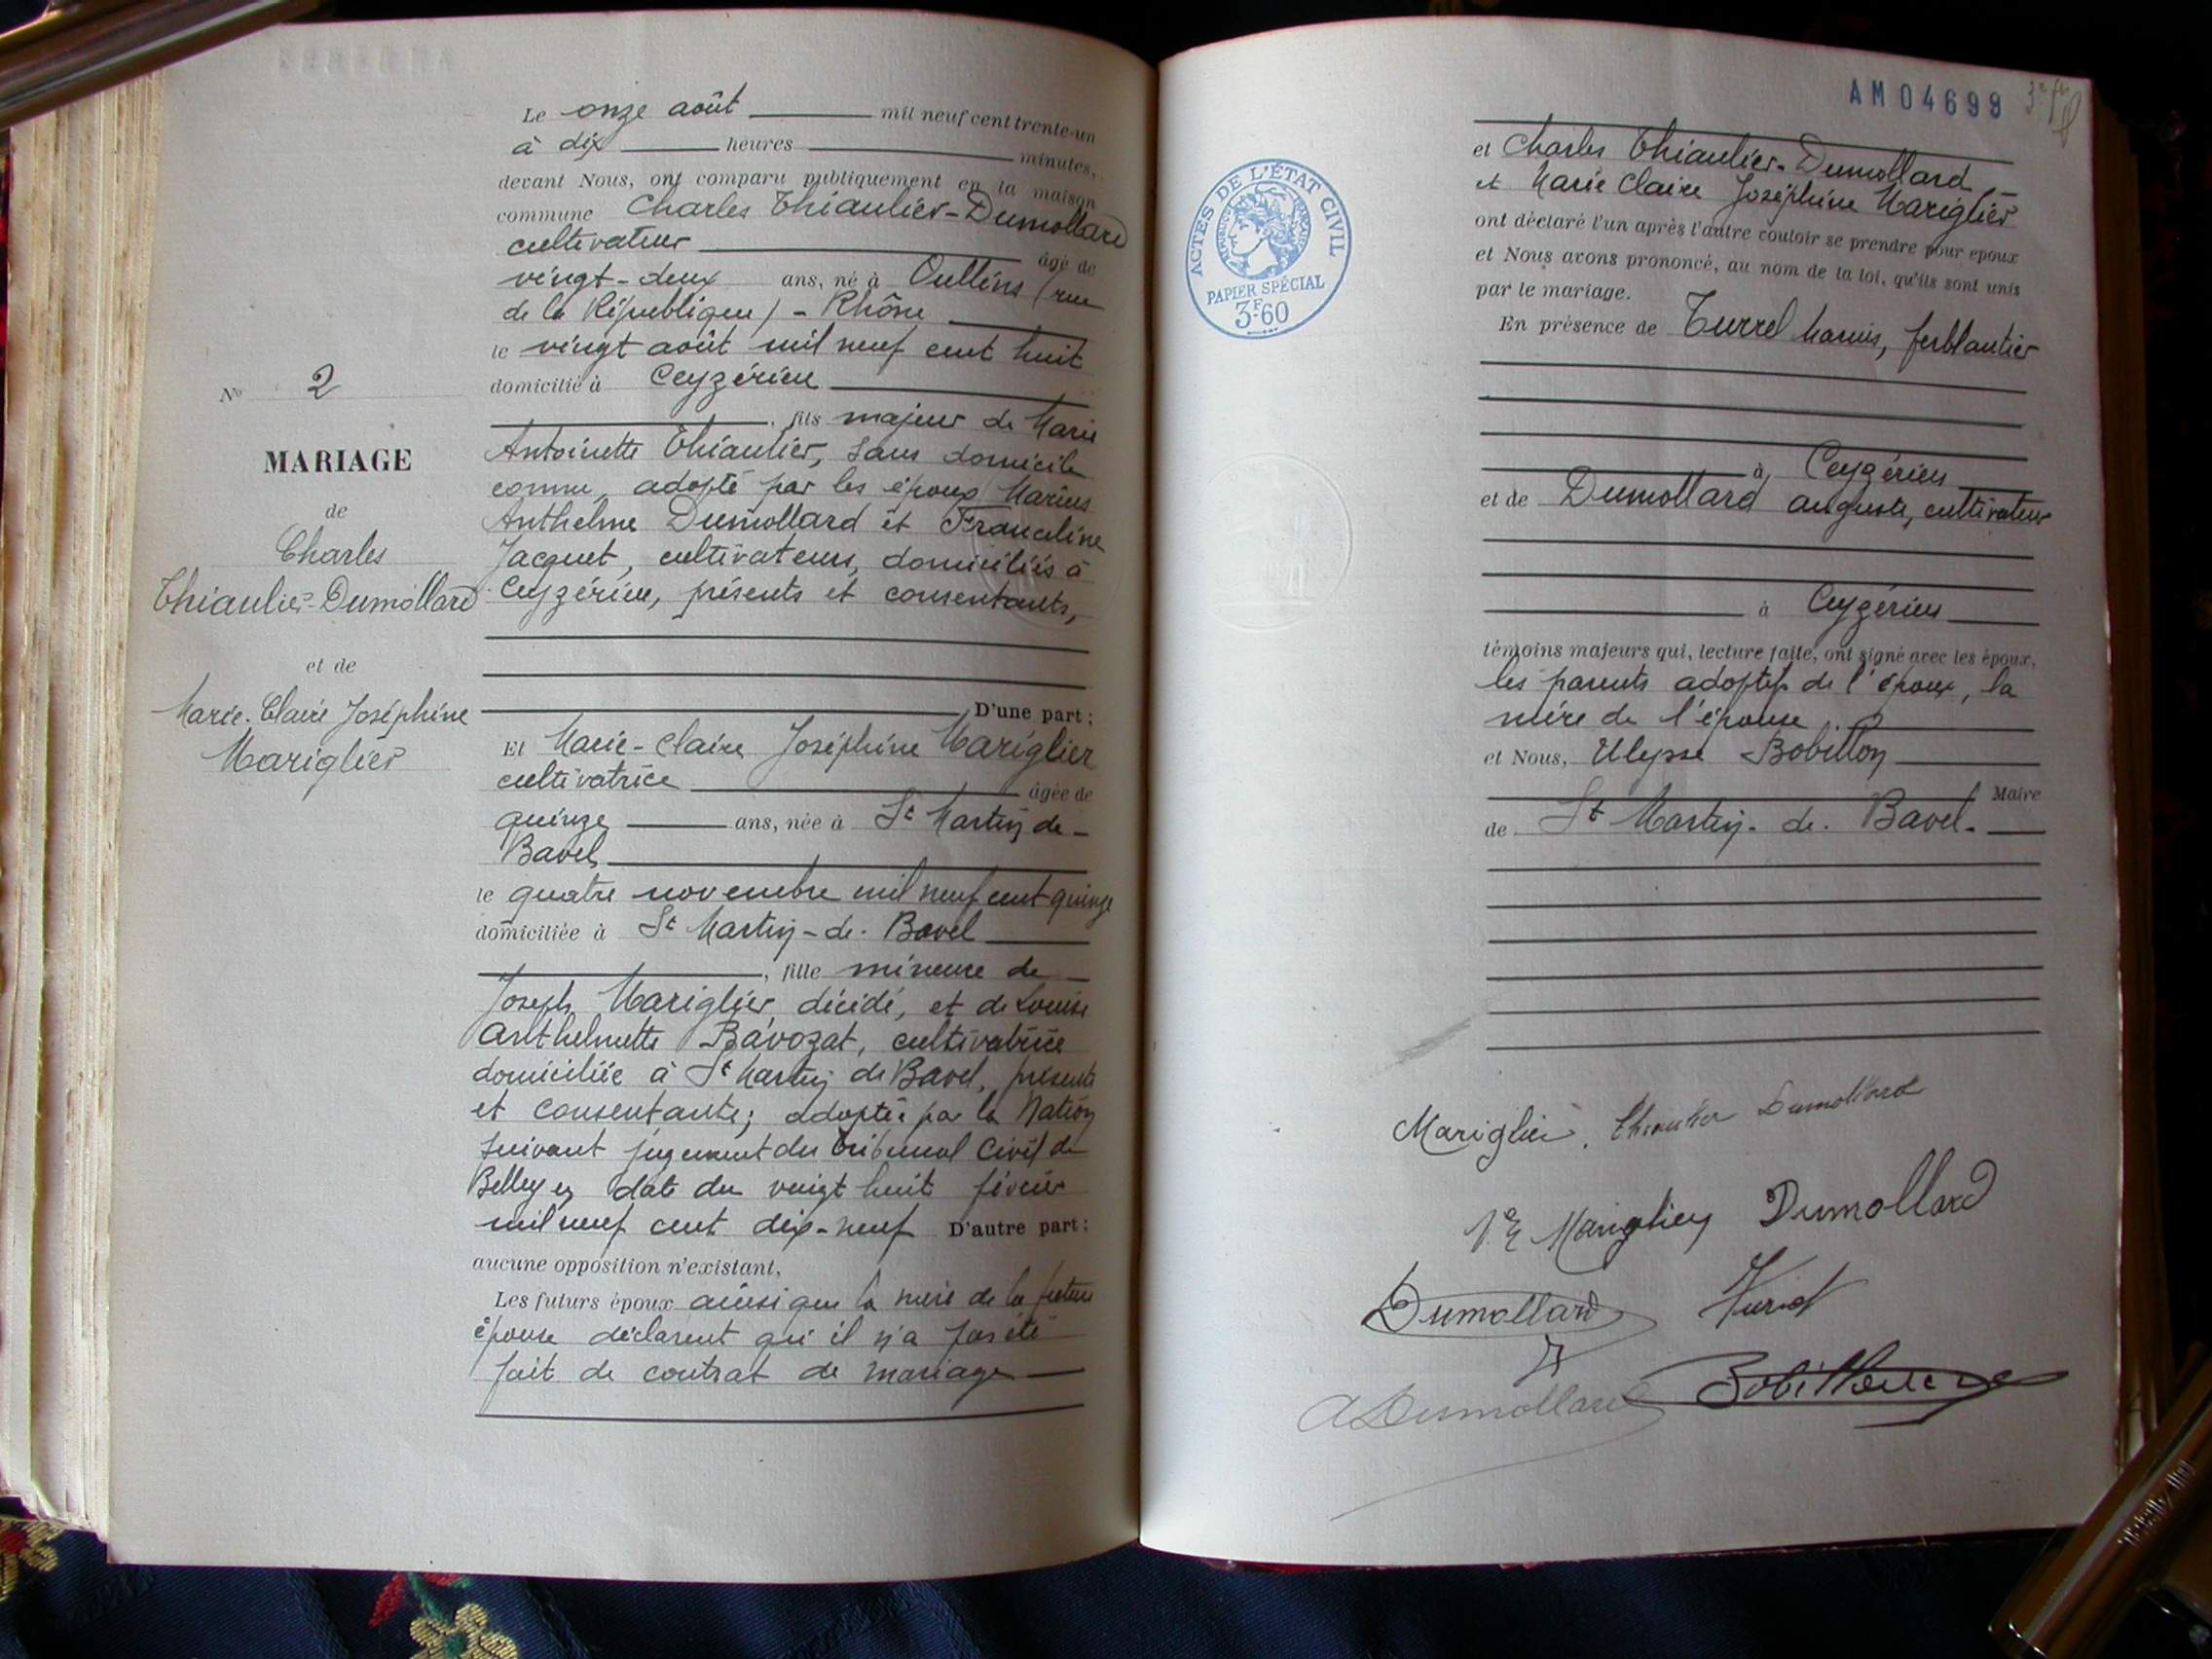 Le onze août mil neuf cent trente-un
à dix heures minutes,
devant Nous, ont comparu publiquement en la maison
commune Charles Thiaulier-Dumollard
cultivateur âgé de
vingt-deux ans, né à Oullins (rue
de la République) - Rhône
le vingt août mil neuf cent huit
domicilié à Ceyzérieu
, fils majeur de Marie
Antoinette Thiaulier, sans domicile
connu, adopté par les époux Marius
Anthelme Dumollard et Franceline
Jacquet, cultivateurs, domiciliés à
Ceyzérieu, présents et consentants,
D'une part ;
Et Marie-Claire Joséphine Mariglier
cultivatrice âgée de
quinze ans, née à St Martin de-
Bavel
le quatre novembre mil neuf cent quinze
domiciliée à St Martin-de-Bavel
, fille mineure de
Joseph Mariglier, décédé, et de Louise
Anthelmette Bavozat, cultivatrice
domiciliée à St Martin de Bavel, présente
et consentante; adoptée par la Nation
suivant jugement du tribunal Civil de
Belley en date du vingt huit février
mil neuf cent dix-neuf D'autre part ;
aucune opposition n'existant,
Les futurs époux ainsi que la mère de la future
épouse déclarent qu'il n'a pas été
fait de contrat de mariage
No 2
MARIAGE
de
Charles
Thiaulier-Dumollard
et de
Marie-Claire Joséphine
Mariglier
AM04699
ACTES DE L'ÉTAT CIVIL
PAPIER SPÉCIAL
3F60
et Charles Thiaulier-Dumollard
et Marie Claire Joséphine Mariglier
ont déclaré l'un après l'autre vouloir se prendre pour époux
et Nous avons prononcé, au nom de la loi, qu'ils sont unis
par le mariage.
En présence de Turrel Marius, ferblantier
à Ceyzérieu
et de Dumollard auguste, cultivateur
à Ceyzérieu
témoins majeurs qui, lecture faite, ont signé avec les époux,
les parents adoptifs de l'époux, la
mère de l'épouse
et Nous, Ulysse Bobillon
Maire
de St Martin-de-Bavel.
Mariglier Thiaulier Dumollard
Ve Mariglier Dumollard
Dumollard
A Dumollard Bobillon